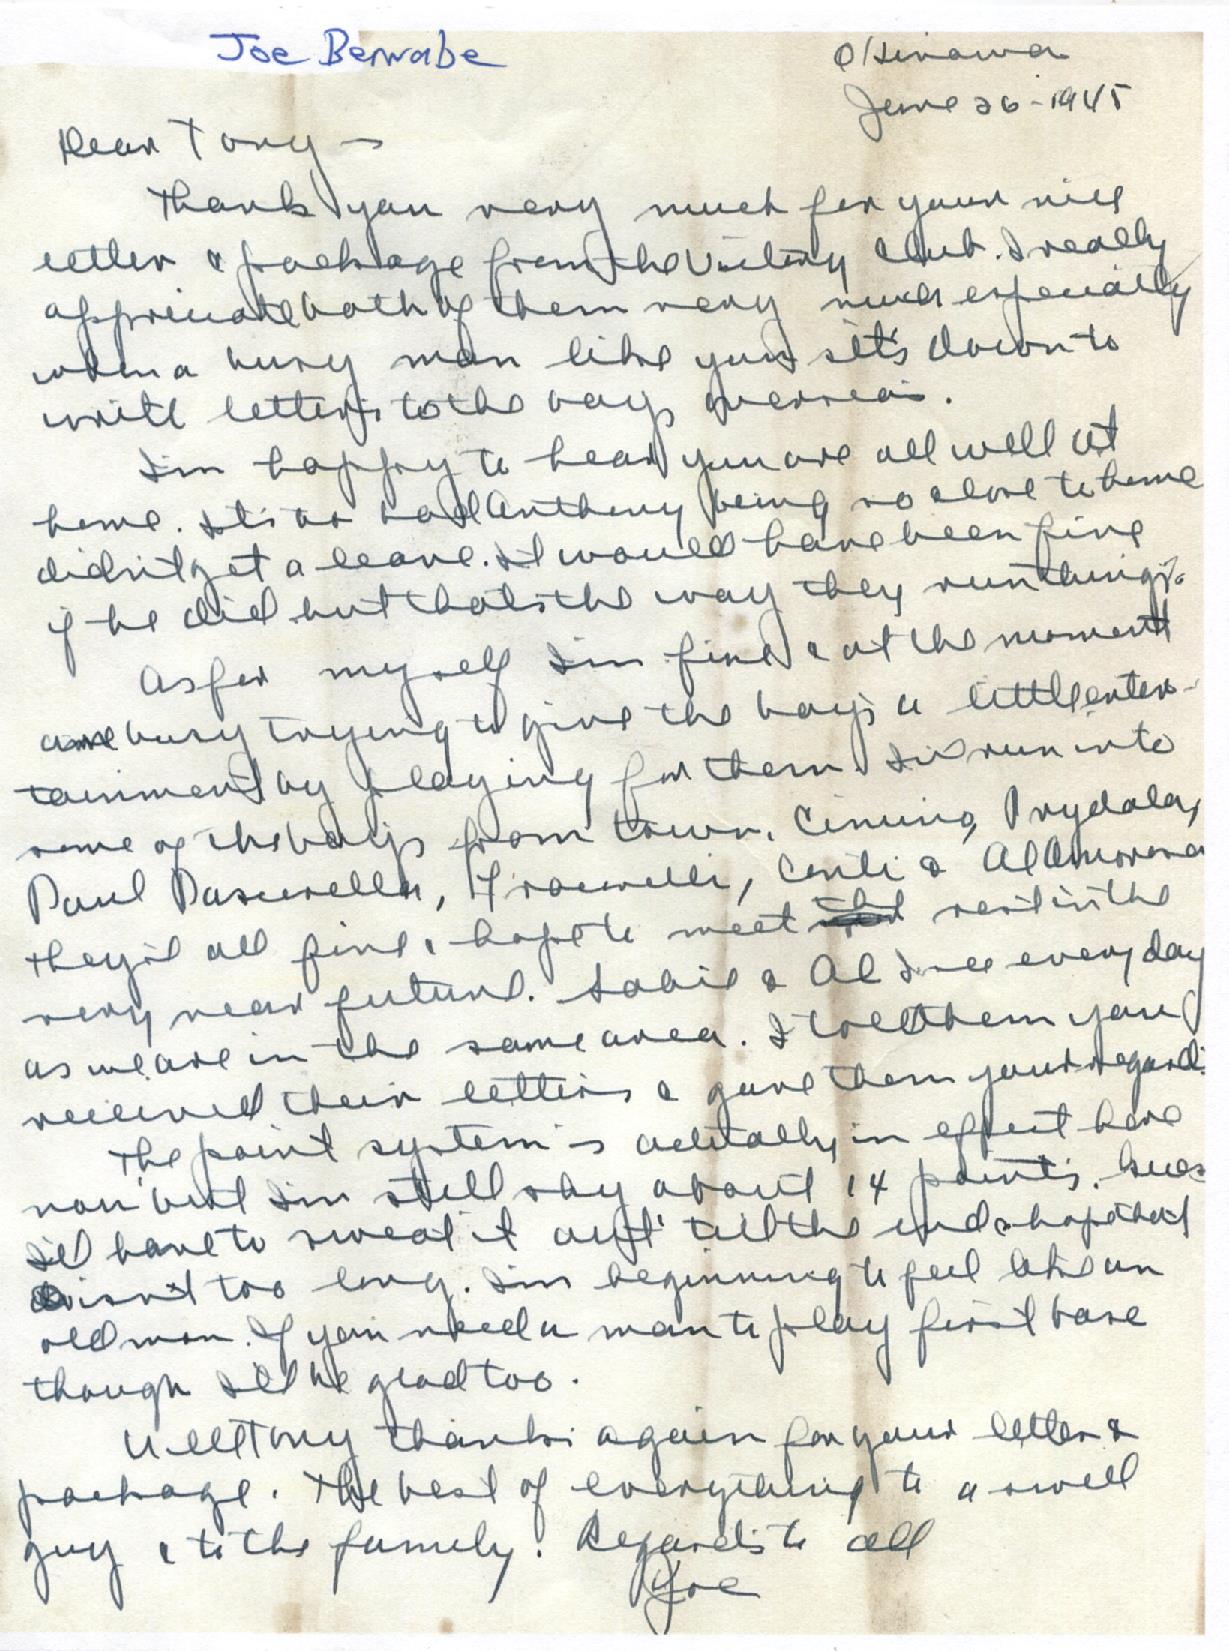 Joe Bernabe
Okinawa
June 26-1945
Dear Tony -
Thank you very much for your nice
letter & package from the Victory Club. I really
appreciate both of them very much especially
when a busy man like you sits down to
write letters to the boys overseas.
I'm happy to hear you are all well at
home. It's too bad Anthony being so close to home
didn't get a leave. It would have been fine
if he did but that's the way they run things.
As for myself I'm fine & at the moment
am busy trying to give the boys a little enter-
tainment by playing for them. I've run into
some of the boys from town. Cimino, Prydalay,
Paul Pascarella, Conti & Al Amorosa
they're all fine & hope to meet the rest in the
very near future. & Al I see every day
as we are in the same area. I told them you
received their letters & gave them your regards.
The point system is actually in effect here
now but I'm still shy about 14 points. Guess
I'll have to sweat it out till the end & hope that
isn't too long. I'm beginning to feel like an
old man. If you need a man to play first base
though I'll be glad too.
Well Tony thanks again for your letter &
package. The best of everything to a swell
guy & to the family. Regards to all
Joe